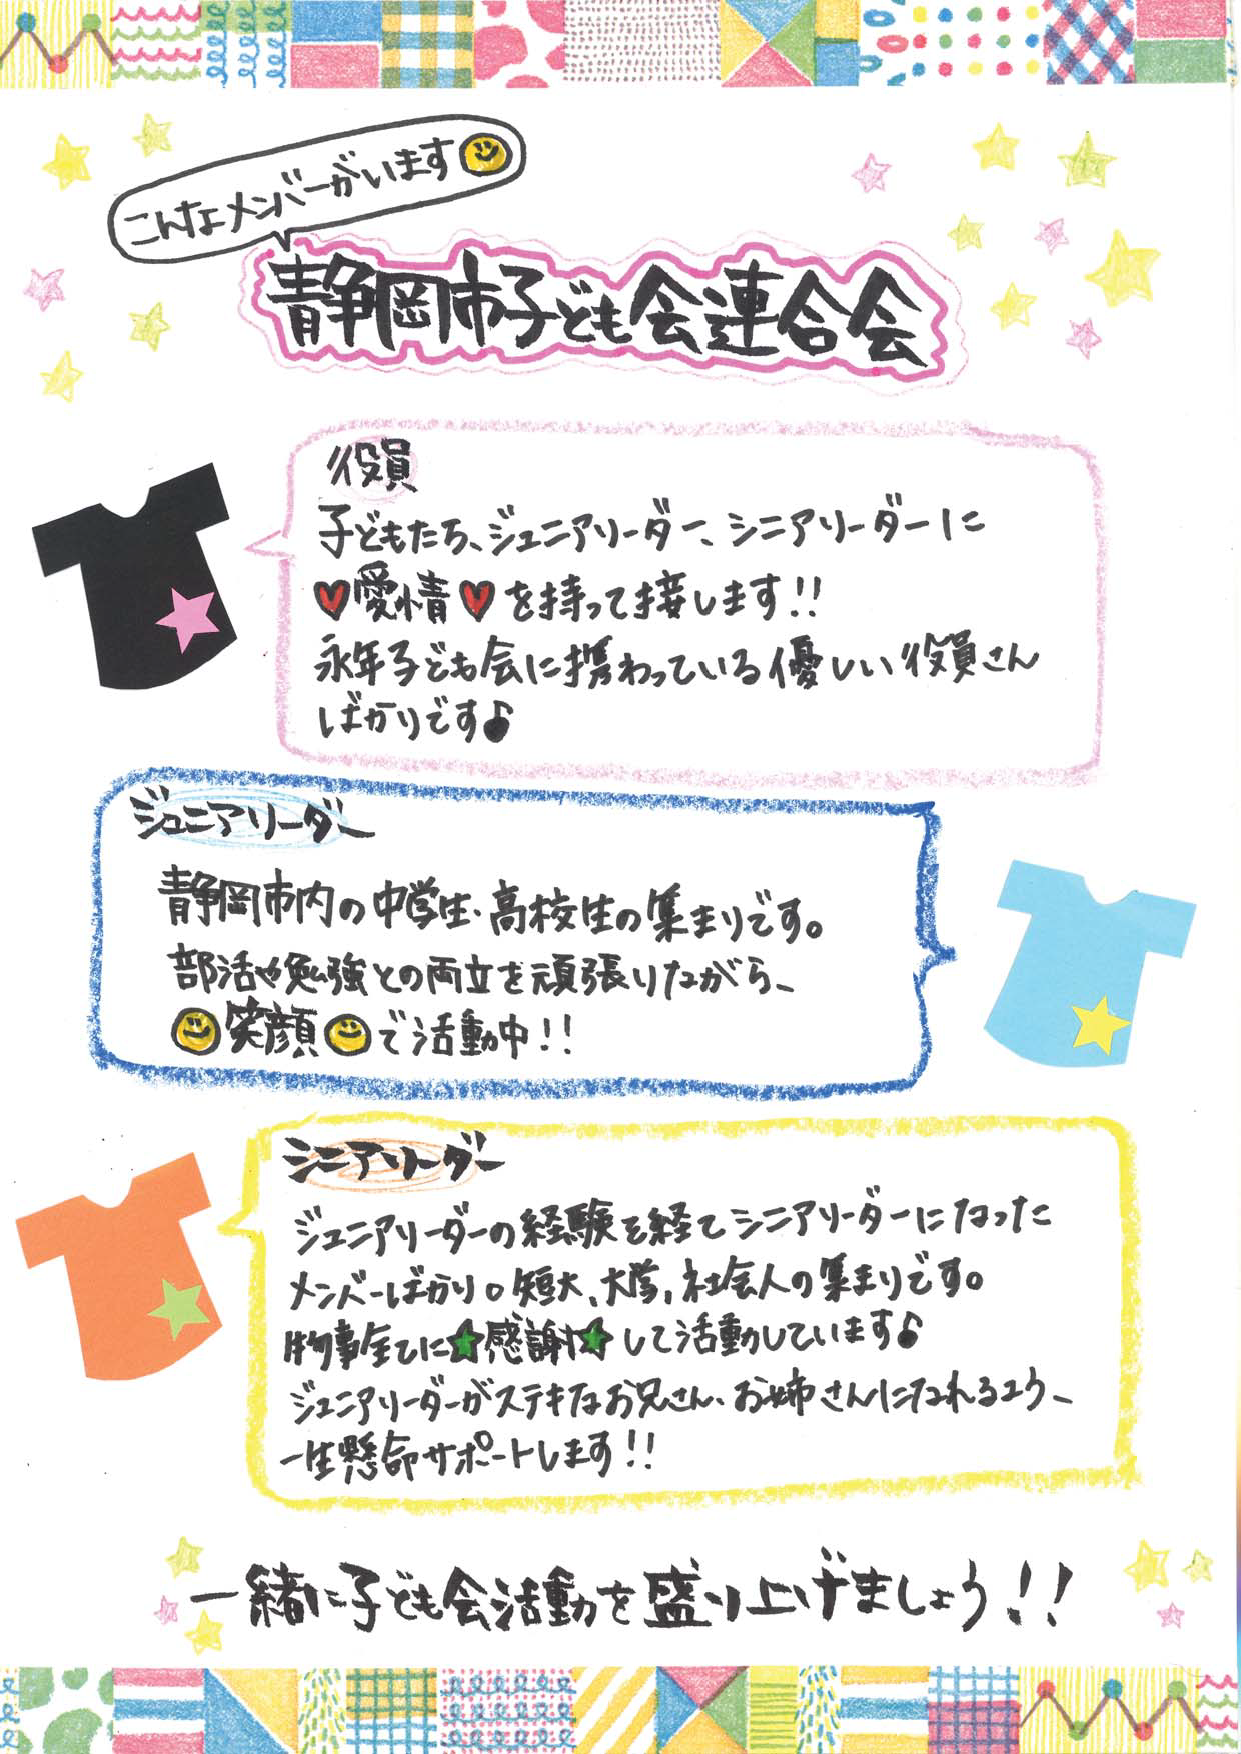 こんなメンバーがいます
静岡市子ども会連合会
役員
子どもたち、ジュニアリーダー、シニアリーダーに
♥愛情♥を持って接します!!
永年子ども会に携わっている優しい役員さん
ばかりです♪
ジュニアリーダー
静岡市内の中学生・高校生の集まりです。
部活や勉強との両立を頑張りながら、
笑顔で活動中!!
シニアリーダー
ジュニアリーダーの経験を経てシニアリーダーになった
メンバーばかり。短大、大学、社会人の集まりです。
物事全てに★感謝★して活動しています♪
ジュニアリーダーがステキなお兄さん、お姉さんになれるよう、
一生懸命サポートします!!
一緒に子ども会活動を盛り上げましょう!!